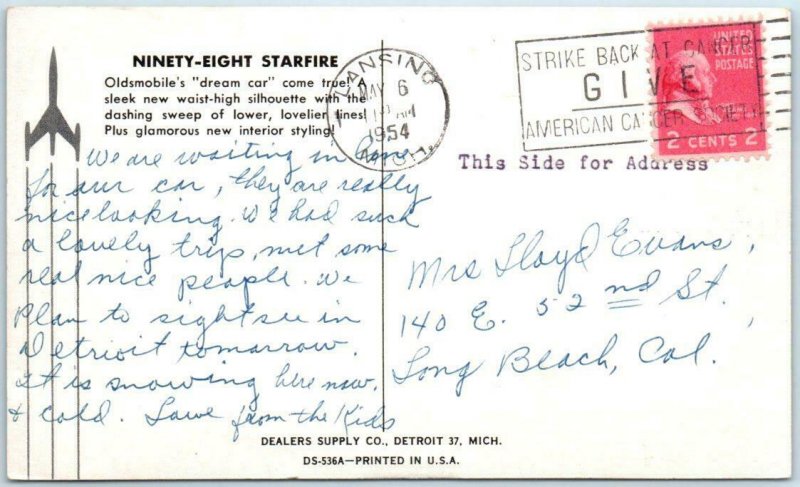 NINETY-EIGHT STARFIRE
Oldsmobile's "dream car" come true! A
sleek new waist-high silhouette with the
dashing sweep of lower, lovelier lines!
Plus glamorous new interior styling!
LANSING
MAY 6
AM
1954
MICH.
STRIKE BACK AT CANCER
GIVE
AMERICAN CANCER SOCIETY
UNITED
STATES
POSTAGE
2 CENTS 2
This Side for Address
We are waiting in
for our car, they are really
nice looking. We had such
a lovely trip, met some
real nice people. We
plan to sightsee in
Detroit tomorrow.
It is snowing here now,
& cold. Love from the Kids
Mrs Lloyd Evans,
140 E. 52nd St.
Long Beach, Cal.
DEALERS SUPPLY CO., DETROIT 37, MICH.
DS-536A—PRINTED IN U.S.A.